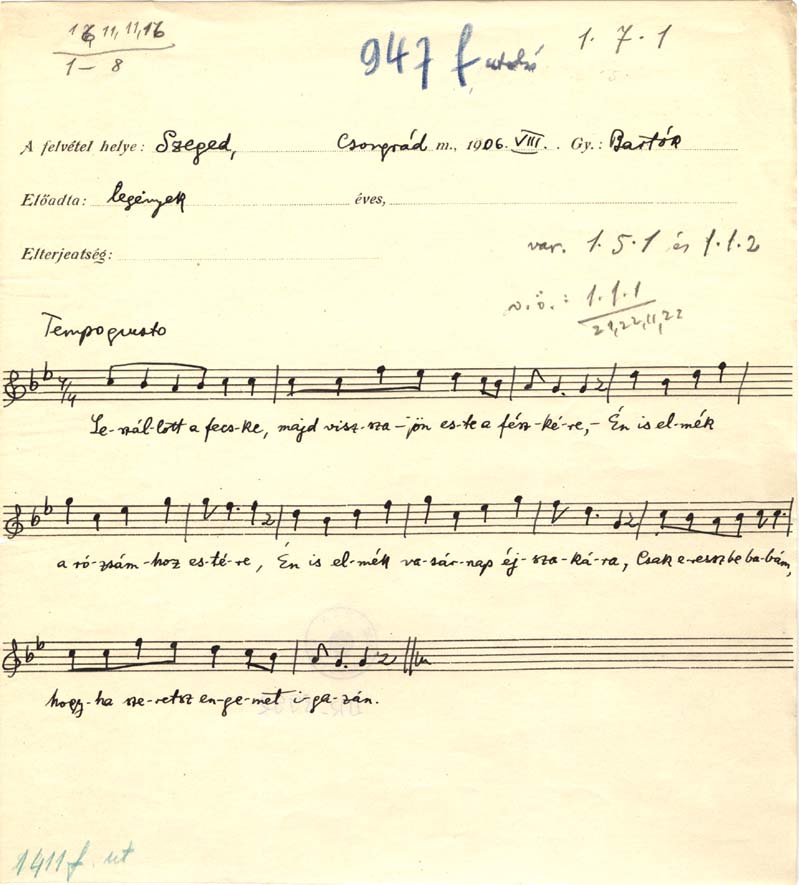 1-8
947 f. utolsó
1.7.1
A felvétel helye: Szeged, Csongrád m., 1906. VIII. Gy.: Bartók
Előadta: legények éves,
Elterjeatség:
var. 1.5.1 és 1.1.2
v.ö.: 1.1.1
21,22,11,22
Tempogiusto
4/4
Le-szál-lott a fecs-ke, majd visz-sza-jön es-te a fész-ké-re,- Én is el-mék
a ró-zsám-hoz es-té-re, Én is el-mék va-sár-nap éj-sza-ká-ra, Csak e-ressz be ba-bám,
hogy-ha sze-retsz en-ge-met i-ga-zán.
1411 f. ut